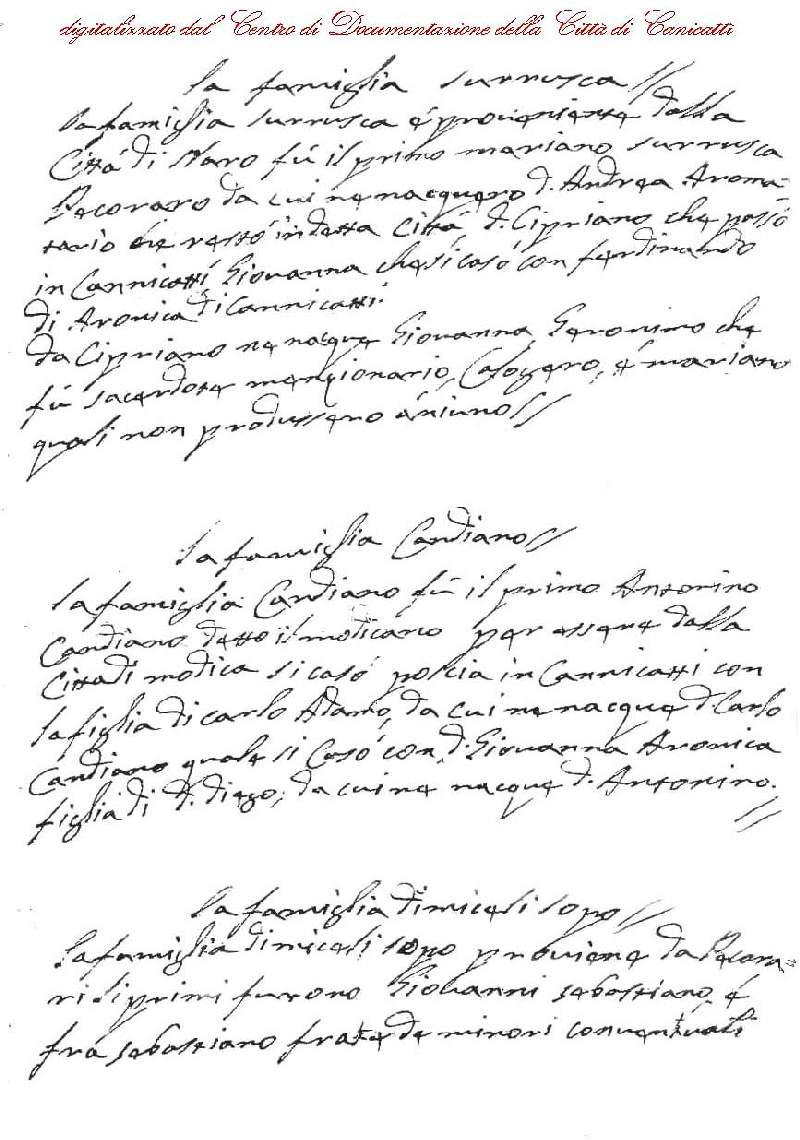 digitalizzato dal Centro di Documentazione della Città di Canicattì
la famiglia surrusca //
la famiglia surrusca é proveniente dalla
Città di Naro fú il primo mariano surrusca
Pecoraro da cui ne nacquero d. Andrea Aroma=
tario che restó in detta Città d. Cipriano che passó
in Cannicattì Giovanna che si casó con ferdinando
di Aronica di Cannicattì.
da Cipriano ne nacque Giovanna, Geronimo che
fú sacerdote mansionario, Calogero, é mariano
quali non produssero á niuno //
la famiglia Candiano //
la famiglia Candiano fú il primo Antonino
Candiano detto il modicano per essere dalla
Città di modica si casó poscia in Cannicatti con
la figlia di carlo Adamo, da cui ne nacque d. Carlo
Candiano quale si Casó con d. Giovanna Aronica
figlia di d. diego, da cui ne nacque d. Antonino.
//
la famiglia di miceli sopo //
la famiglia di miceli sopo proviene da Pecora=
ri di primi furono Giovanni sebastiano, é
frá sebastiano frate de minori conventuali